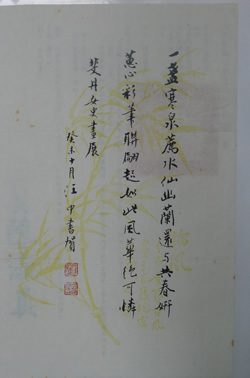 一盞寒泉薦水仙幽蘭還与共春妍
蕙心彩筆聯翩起如此風華絕可憐
斐丹女史畫展
癸未十月汪中書賀